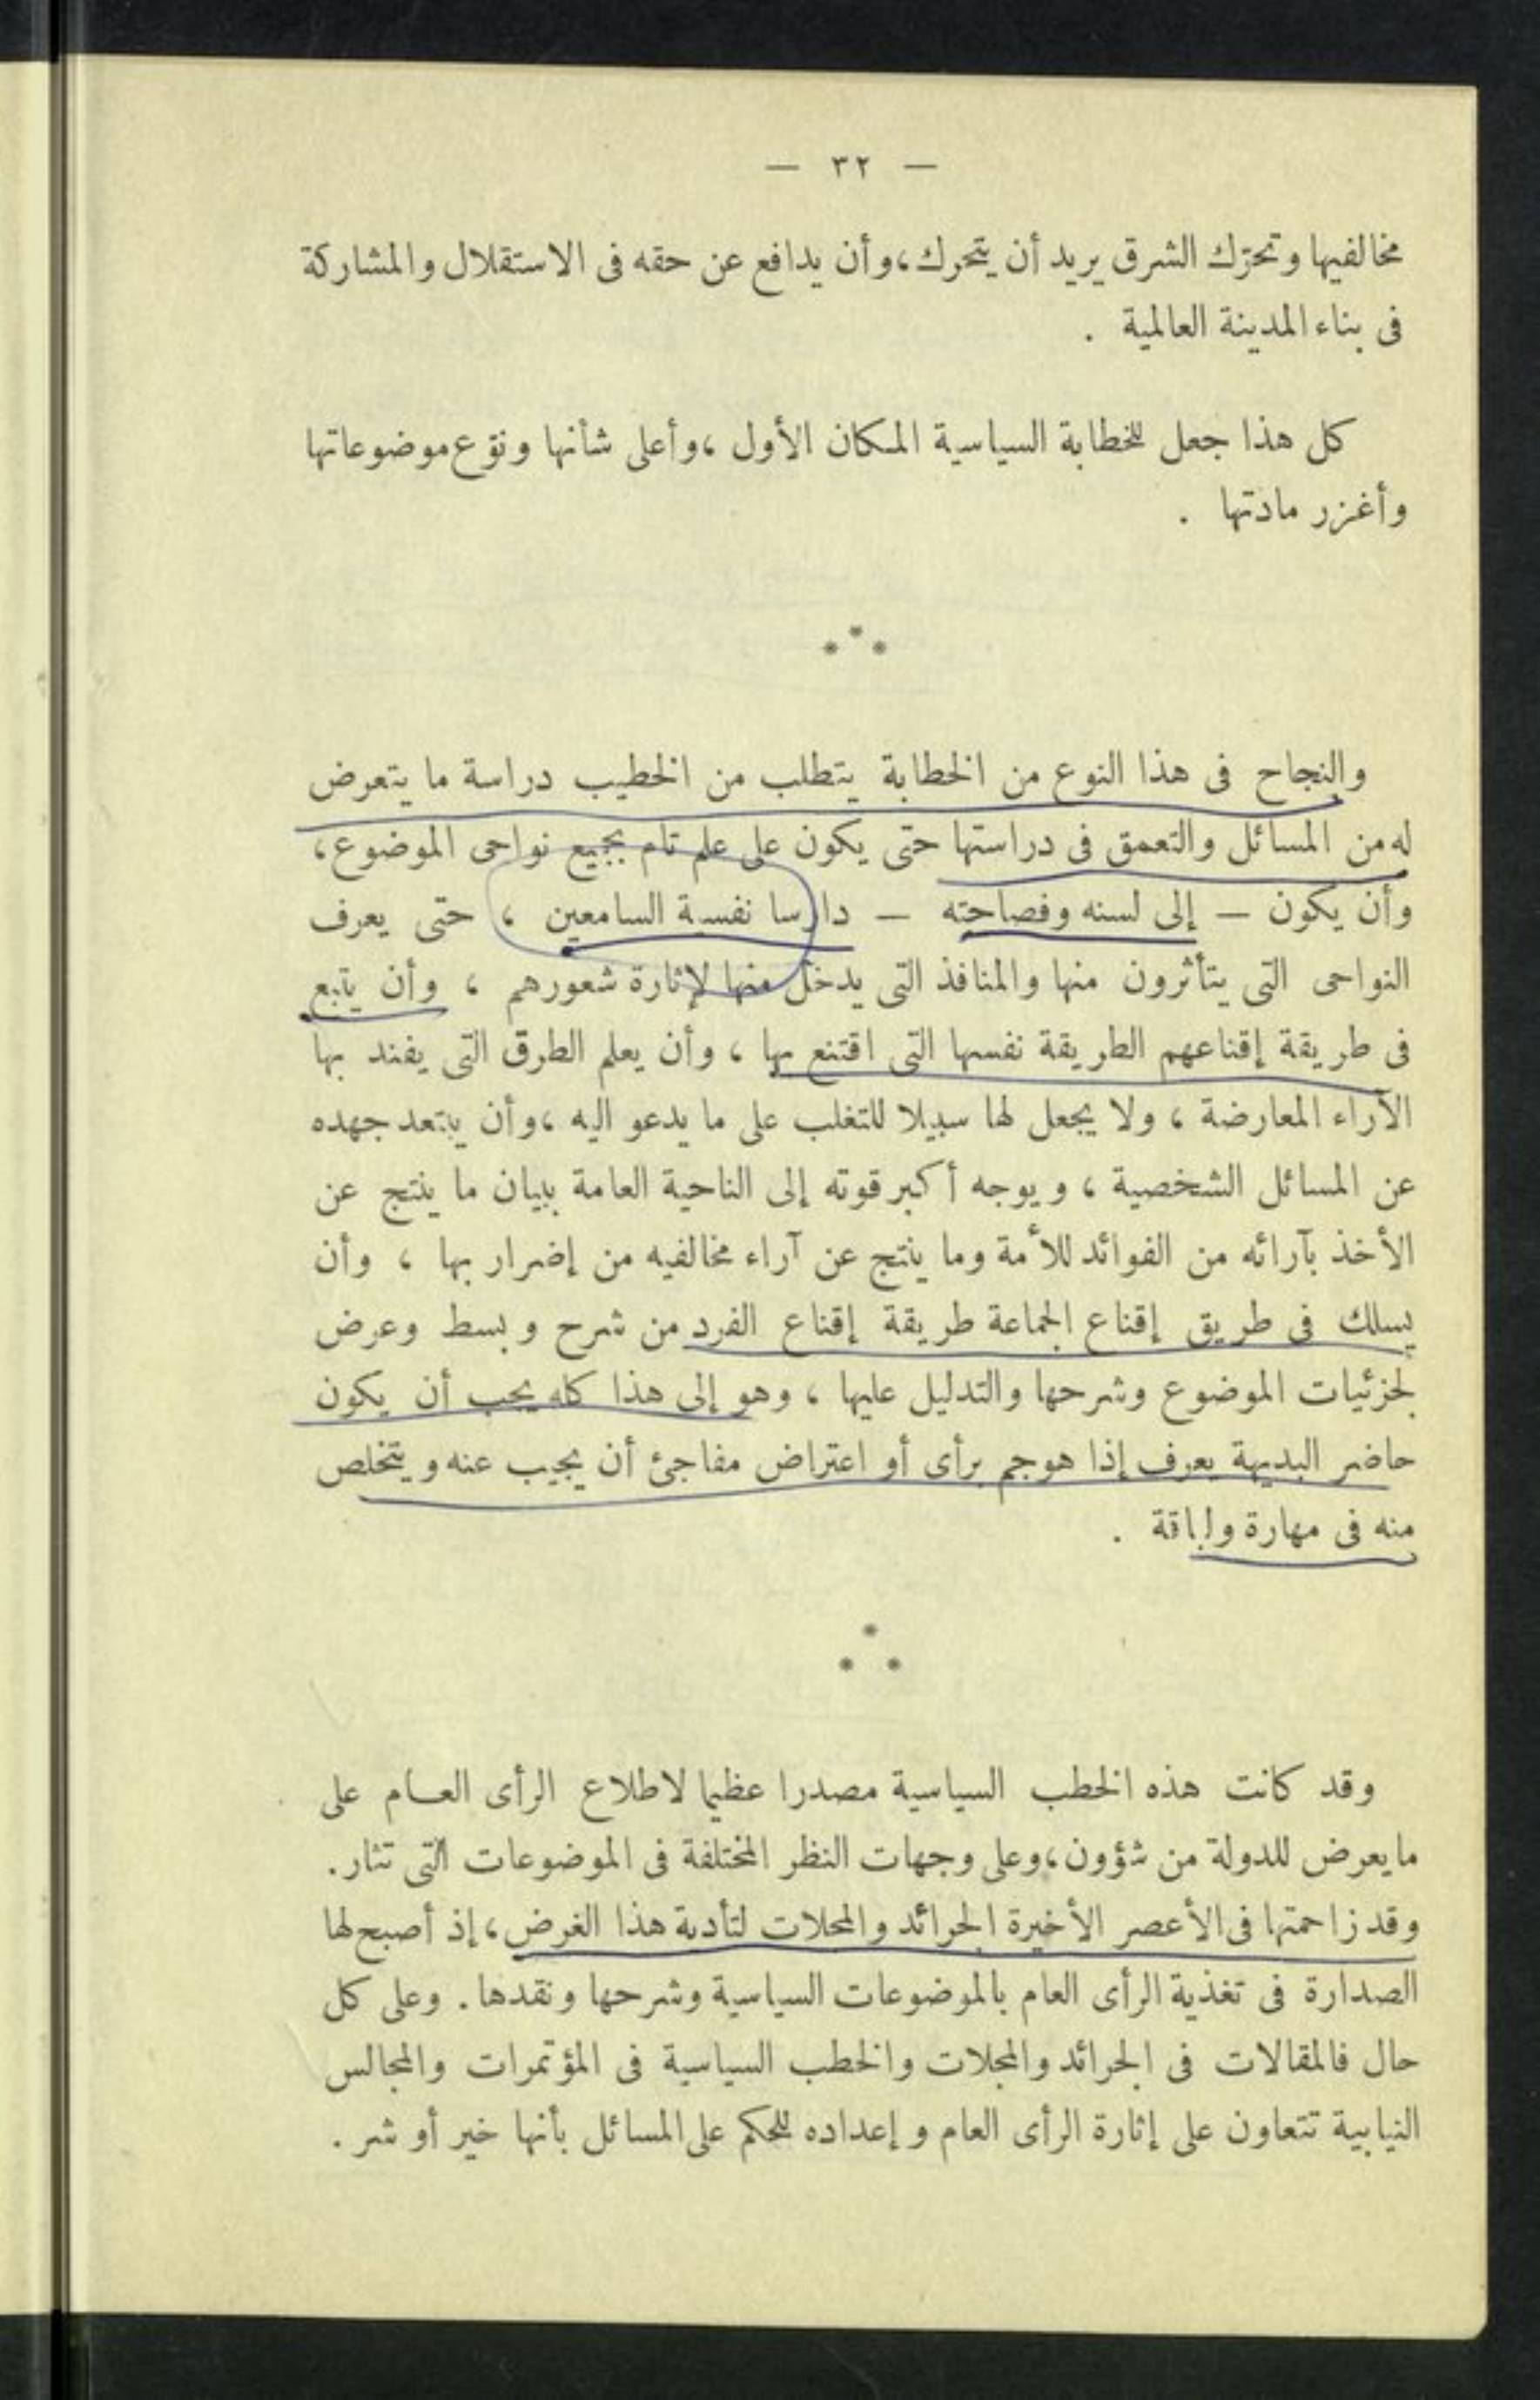 — ٣٢ —
مخالفيها وتحرّك الشرق يريد أن يتحرك، وأن يدافع عن حقه فى الاستقلال والمشاركة
فى بناء المدينة العالمية .
كل هذا جعل للخطابة السياسية المكان الأول ، وأعلى شأنها ونوّع موضوعاتها
وأغزر مادتها .
* * *
والنجاح فى هذا النوع من الخطابة يتطلب من الخطيب دراسة ما يتعرض
له من المسائل والتعمق فى دراستها حتى يكون على علم تام بجميع نواحى الموضوع ،
وأن يكون — إلى لسنه وفصاحته — دارسا نفسية السامعين ، حتى يعرف
النواحى التى يتأثرون منها والمنافذ التى يدخل منها لإثارة شعورهم ، وأن يتبع
فى طريقة إقناعهم الطريقة نفسها التى اقتنع بها ، وأن يعلم الطرق التى يفند بها
الآراء المعارضة ، ولا يجعل لها سبيلا للتغلب على ما يدعو اليه ، وأن يبتعد جهده
عن المسائل الشخصية ، ويوجه أكبر قوته إلى الناحية العامة ببيان ما ينتج عن
الأخذ بآرائه من الفوائد للأمة وما ينتج عن آراء مخالفيه من إضرار بها ، وأن
يسلك فى طريق إقناع الجماعة طريقة إقناع الفرد من شرح وبسط وعرض
لجزئيات الموضوع وشرحها والتدليل عليها ، وهو إلى هذا كله يجب أن يكون
حاضر البديهة يعرف إذا هوجم برأى أو اعتراض مفاجئ أن يجيب عنه ويتخلص
منه فى مهارة ولباقة .
* * *
وقد كانت هذه الخطب السياسية مصدرا عظيما لاطلاع الرأى العام على
ما يعرض للدولة من شؤون ، وعلى وجهات النظر المختلفة فى الموضوعات التى تثار .
وقد زاحمتها فى الأعصر الأخيرة الجرائد والمجلات لتأدية هذا الغرض ، إذ أصبح لها
الصدارة فى تغذية الرأى العام بالموضوعات السياسية وشرحها ونقدها . وعلى كل
حال فالمقالات فى الجرائد والمجلات والخطب السياسية فى المؤتمرات والمجالس
النيابية تتعاون على إثارة الرأى العام وإعداده للحكم على المسائل بأنها خير أو شر .